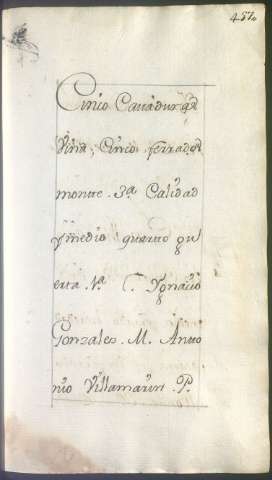 457
Cinco Cavaduras
Viña, Cinco ferrados
monte 3ª Calidad
y medio quarto gu
erta 1ª T. Ygnacio
Gonzales. M. Anto
nio Villamarin. P.